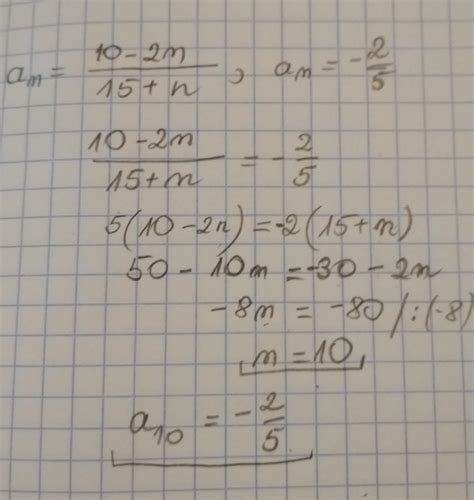 aₙ = (10-2n)/(15+n), aₙ = -2/5
(10-2n)/(15+n) = -2/5
5(10-2n) = -2(15+n)
50 - 10n = -30 - 2n
-8n = -80 /:(-8)
n = 10
a₁₀ = -2/5